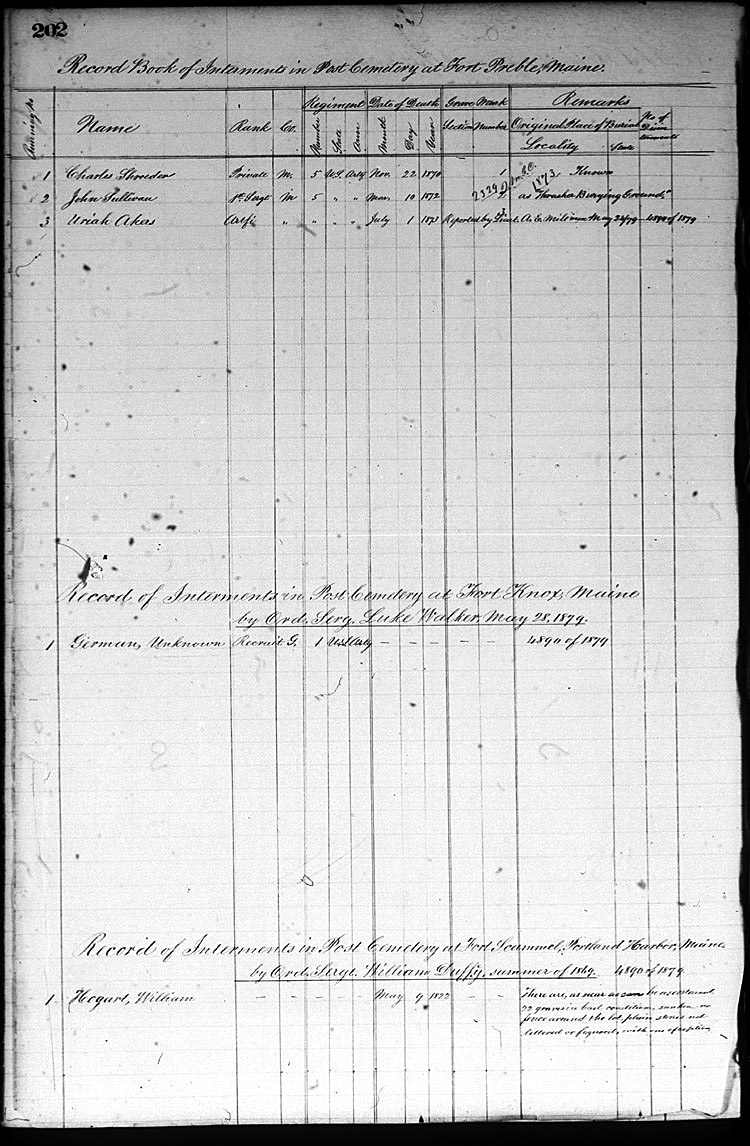 202
Record Book of Interments in Post Cemetery at Fort Preble, Maine.
Running No Name Rank Co. Regiment Date of Death Grave Mark Remarks No of Dis- interments
Number State Arm Month Day Year Section Number Original Place of Burial
Locality State
1 Charles Shroeder Private M. 5 U.S. Arty Nov. 22 1870 1 Known
2329 1873
2 John Sullivan 1st Sergt M 5 " " Mar. 10 1872 as Thrasha Burying Ground."
3 Uriah Akers Artfi " " " " July 1 187 Reported by Lieut. A. E. May 24/79 4890 of 1879
Record of Interments in Post Cemetery at Fort Knox, Maine
by Ord. Serg. Luke Walker, May 28, 1879.
1 German, Unknown Recruit G. 1 U.S. Arty – – – – – 4890 of 1879
Record of Interments in Post Cemetery at Fort Scammel, Portland Harbor, Maine
by Ord. Sergt. William Duffy, summer of 1849. 4890 of 1879
1 Hogart, William – – – – – May 9 1822 – – There are, as near as can be ascertained
22 graves in bad condition, no
fence around the lot, plain stones not
lettered or figured, with one exception